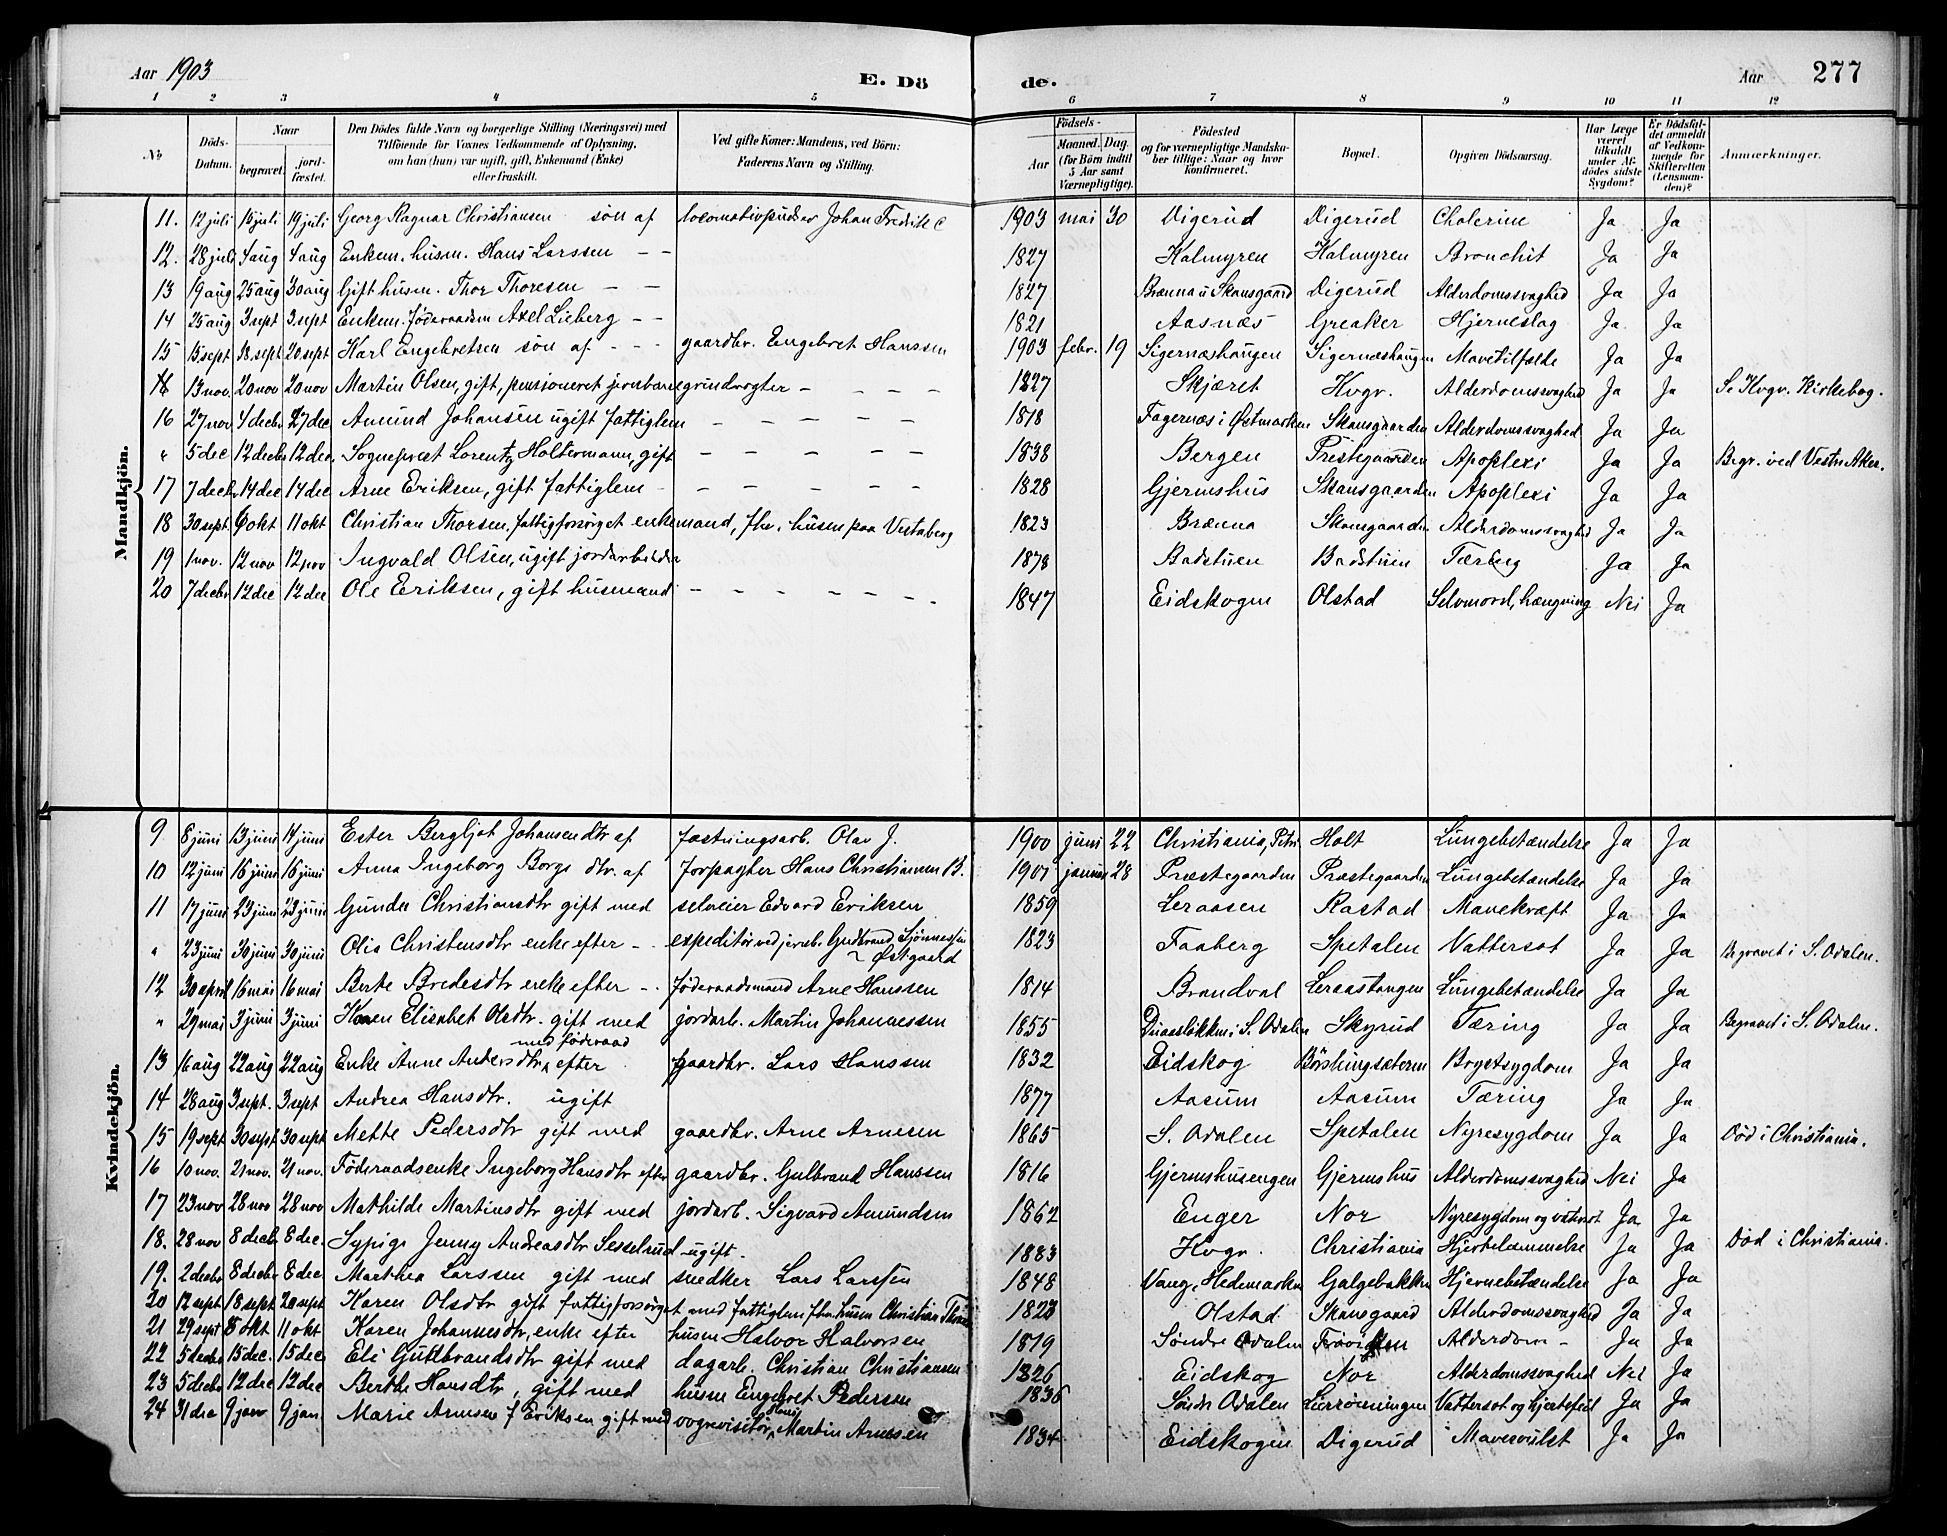 Aar 1903 E. Dö de. Aar 277
1 2 3 4 5 6 7 8 9 10 11 12
No. Döds-Datum. Naar begravet. jordfæstet. Den Dödes fulde Navn og borgerlige Stilling (Næringsvei) med Tilföiende for Voxnes Vedkommende af Oplysning, om han (hun) var ugift, gift, Enkemand (Enke) eller fraskilt. Ved gifte Koner: Mandens, ved Börn: Faderens Navn og Stilling. Födsels- Aar Maaned. Dag. (for Börn indtil 5 Aar samt Værnepligtige). Födested og for værnepligtige Mandskaber tillige: Naar og hvor konfirmeret. Bopæl. Opgiven Dödsaarsag. Har Læge været tilkaldt under Afdödes sidste Sygdom? Er Dödsfaldet anmeldt af Vedkommende for Skifteretten (Lensmanden)? Anmærkninger.
Mandkjön.
11. 12 juli 15 juli 19 juli Georg Ragnar Christiansen sön af locomativpudser Johan Fredrik C 1903 mai 30 Digerud Digerud Cholerine Ja Ja
12. 28 juli 4 aug 4 aug Enkem. husm. Hans Larssen - - 1827 Kalmyren Kalmyren Bronchit Ja Ja
13 19 aug 25 aug 30 aug Gift husm. Thor Thoresen - - 1827 Brænna u Skansgaard Digerud Alderdomssvaghed Ja Ja
14 25 aug 3 sept 3 sept Enkem. Föderaadsm Axel Lieberg - - 1821 Aasnæs Greaker Hjerneslag Ja Ja
15 15 sept 18 sept 20 sept Karl Engebretsen sön af - - - gaardbr. Engebret Hanssen 1903 febr. 19 Sigernæshaugen Sigernæshaugen Mavetilfælde Ja Ja
13 nov. 20 nov 20 nov Martin Olsen, gift, pensjoneret jernbanegrindvogter - - - - 1827 Skjæret Kvgr. Alderdomssvaghed Ja Ja Se Kvgr. Kirkebog.
16 27 nov. 4 decbr 27 dec Amund Johansen ugift fattiglem - - - - - 1818 Fagernæs i Østmarken Skansgaarden Alderdomssvaghed Ja Ja
" 5 dec 12 decbr 12 dec. Sognepræst Lorentz Holtermann, gift - - - - - 1838 Bergen Prestegaarden Apoplexi Ja Ja Begr. ved Vestre Aker.
17 7 decbr 14 dec 14 dec Arne Eriksen, gift fattiglem - - - - - - 1828 Gjermshus Skansgaarden Apoplexi Ja Ja
18 30 sept 6 okt 11 okt Christian Thorsen, fattigforsörget enkemand, fhv. husm paa Vestaberg 1823 Brænna Skansgaarden Alderdomssvaghed Ja Ja
19 1 nov. 12 nov 12 nov Ingvald Olsen, ugift jordarbeider 1878 Badstuen Badstuen Tæring Ja Ja
20 7 decbr 12 dec 12 dec Ole Eriksen, gift husmand - - - - - - - 1847 Eidskogen Olstad Selvmord, hængning Nei Ja
Kvindekjön.
9 8 juni 13 juni 14 juni Ester Bergljot Johansen dtr af fæstningsarb. Olav J. 1900 juni 22 Christiania, Petri Holt Lungebetændelse Ja Ja
10 12 juni 16 juni 16 juni Anna Ingeborg Borge dtr. af Forpagter Hans Christiansen B. 1901 januar 28 Præstegaarden Præstegaarden Lungebetændelse Ja Ja
11 17 juni 23 juni 23 juni Gunda Christiansdtr gift med selveier Edvard Eriksen 1859 Leraasen Rastad Mavekræft Ja Ja
" 23 juni 30 juni 30 juni Olia Christensdtr enke efter - . expeditör ved jernb. Gudbrand Sjønnessen Østgaard 1823 Faaberg Spetalen Vattersot Ja Ja Begravet i S. Odalen.
12 30 april 16 mai 16 mai Berte Bredesdtr enke efter - . föderaadsmand Arne Hanssen 1814 Brandval Leraastangen Lungebetændelse Ja Ja
" 29 mai 3 juni 3 juni Karen Elisabet Olsdtr. gift med jordarb. Martin Johannessen 1855 S. Odalen Skyrud Tæring Ja Ja Begravet i S. Odalen.
13 16 aug 22 aug 22 aug Enke Anne Andersdtr med föderaad efter gaardbr. Lars Hanssen 1832 Eidskog Börslingsæteren Brystsygdom Ja Ja
14 28 aug 3 sept. 3 sept Andrea Hansdtr. ugift 1877 Aasum Aasum Tæring Ja Ja
15 19 sept 30 sept 30 sept Mette Pedersdtr gift med gaardbr. Arne Arnesen 1865 S. Odalen Spetalen Nyresygdom Ja Ja Död i Christiania.
16 10 nov. 21 nov. 21 nov. Föderaadsenke Ingeborg Hansdtr efter gaardbr. Gulbrand Hanssen 1816 Gjermshusengen Gjermshus Alderdomssvaghed Nei Ja
17 23 nov 28 nov 28 nov Mathilde Martinsdtr gift med jordarb. Sigvard Amundsen 1862 Enger Nor Nyresygdom og vatersot Ja Ja
18. 28 nov 8 decbr 8 dec. Sypige Jenny Andreasdtr Sesselrud ugift. 1883 Kvgr. Christiania Hjertelammelse Ja Ja Död i Christiania.
19. 2 decbr 8 decbr 8 dec Marthea Larssen gift med snedker Lars Larssen 1848 Vang, Hedemarken Galgebakken Hjernebetændelse Ja Ja
20 12 sept 18 sept 20 sept Karen Olsdtr gift fattigforsörget med fattiglem fhv. husm Christian Thorsen 1823 Olstad Skansgaard Alderdomssvaghed Ja Ja
21 29 sept 8 okt 11 okt Karen Johannesdtr, enke efter husm Halvor Halvorsen 1819 Søndre Odalen Alderdom - Ja Ja
22 5 decbr 15 dec. 15 dec Eli Gulbrandsdtr gift med dagarb. Christian Christiansen 1826 Eidskog Nor Alderdomssvaghed Nei Ja
23 5 decbr 12 dec 12 dec Berthe Hansdtr, gift med husm Engebret Pedersen 1836 Söndr Odalen Lierröningen Vattersot og hjertefeil Ja Ja
24 31 dec 9 janr 9 jan. Marie Arnesen f Eriksen gift med vognvisitör Hans Martin Arnesen 1834 Eidskogen Digerud Mavesvulst Ja Ja